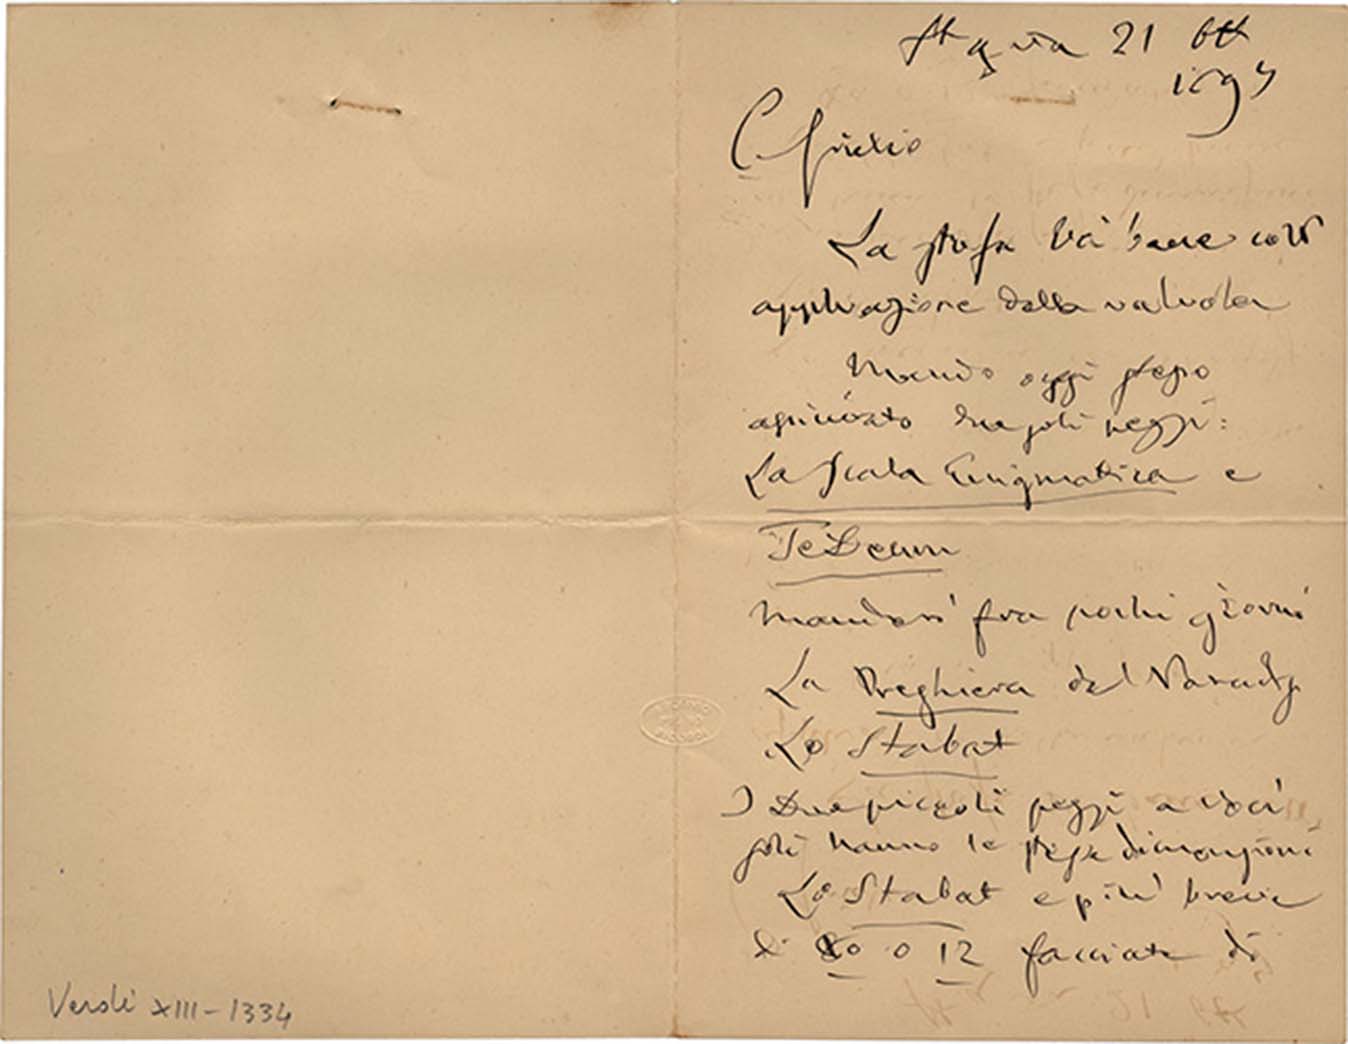 St Agata 21 Ott
1897
C. Giulio
La stufa và bene coll'
applicazione della valvola
Mando oggi stesso
assicurato due soli pezzi:
La Scala Enigmatica e
Te Deum
Manderò fra pochi giorni
La Preghiera del Parad.
Lo Stabat
I Due piccoli pezzi a voci
sole hanno le stesse dimensioni
Lo Stabat e più breve
di 10 o 12 facciate di
Verdi XIII-1334